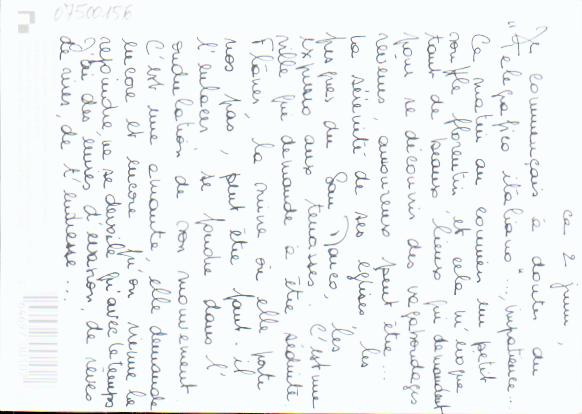 07500156
ce 2 juin,
Je commençais à douter du
"Telegrafico italiano"..., impatience...
Ce matin au courrier un petit
souffle florentin et cela m'évoque
tant de beaux lieux qui demandent
pour se découvrir des vagabondages
rêveurs, amoureux peut être...
la sérénité de ses églises, les
fresques du San Marco, les
expresso aux terrasses. C'est une
ville qui demande à être séduite.
Flâner, la suivre où elle porte
nos pas, peut être faut-il
l'enlacer, se fondre dans l'
ondulation de son mouvement
C'est une amante, elle demande
encore et encore qu'on vienne la
rejoindre, ne se dévoile qu'avec le temps
J'ai des envies d'évasion, de rêves
de rues, de t'entresse...